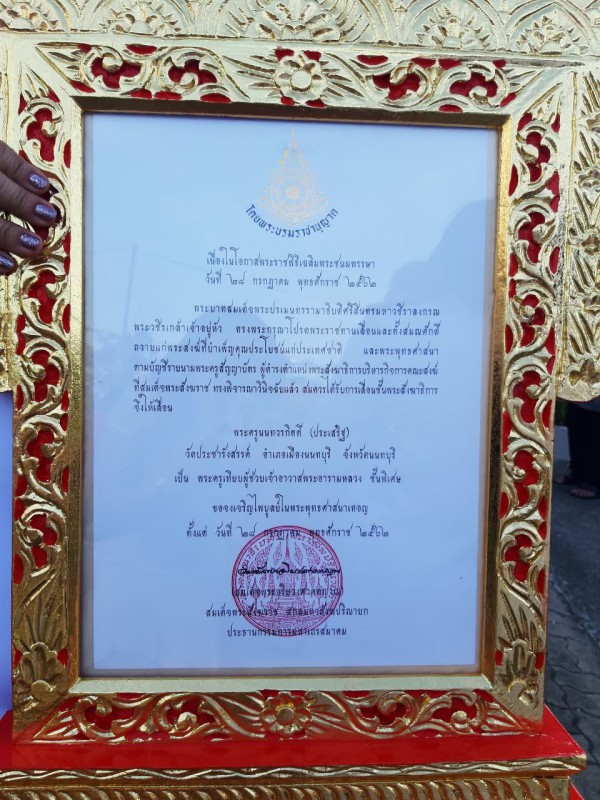 โดยพระบรมราชานุญาต
เนื่องในโอกาสพระราชพิธีเฉลิมพระชนมพรรษา
วันที่ ๒๘ กรกฎาคม พุทธศักราช ๒๕๖๒
พระบาทสมเด็จพระปรเมนทรรามาธิบดีศรีสินทรมหาวชิราลงกรณ
พระวชิรเกล้าเจ้าอยู่หัว ทรงพระกรุณาโปรดพระราชทานเลื่อนและตั้งสมณศักดิ์
ถวายแก่พระสงฆ์ที่บำเพ็ญคุณประโยชน์แก่ประเทศชาติ และพระพุทธศาสนา
ตามบัญชีรายนามพระครูสัญญาบัตร ผู้ดำรงตำแหน่งพระสังฆาธิการบริหารกิจการคณะสงฆ์
ที่สมเด็จพระสังฆราช ทรงพิจารณาวินิจฉัยแล้ว สมควรได้รับการเลื่อนชั้นพระสังฆาธิการ
จึงให้เลื่อน
พระครูนนทวรกิตติ์ (ประเสริฐ)
วัดประชารังสรรค์ อำเภอเมืองนนทบุรี จังหวัดนนทบุรี
เป็น พระครูเทียบผู้ช่วยเจ้าอาวาสพระอารามหลวง ชั้นพิเศษ
ขอจงเจริญไพบูลย์ในพระพุทธศาสนาเทอญ
ตั้งแต่ วันที่ ๒๘ กรกฎาคม พุทธศักราช ๒๕๖๒
(สมเด็จพระอริยวงศาคตญาณ)
สมเด็จพระสังฆราช สกลมหาสังฆปริณายก
ประธานกรรมการมหาเถรสมาคม